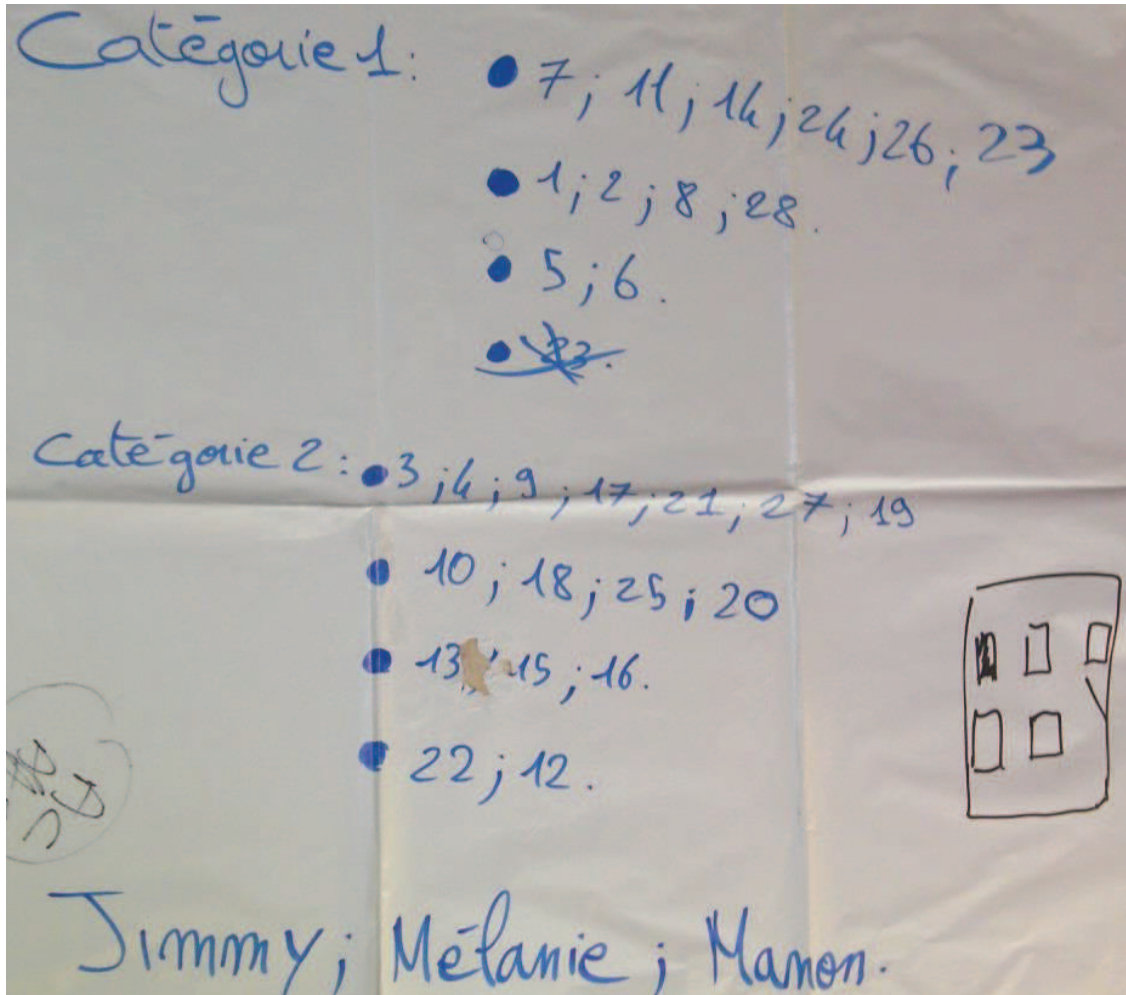 Catégorie 1: • 7 ; 11 ; 14 ; 24 ; 26 ; 23
• 1 ; 2 ; 8 ; 28.
• 5 ; 6.
• 23.
Catégorie 2 : • 3 ; 4 ; 9 ; 17 ; 21 ; 27 ; 19
• 10 ; 18 ; 25 ; 20
• 13 ; 15 ; 16.
• 22 ; 12.
Jimmy ; Mélanie ; Manon.